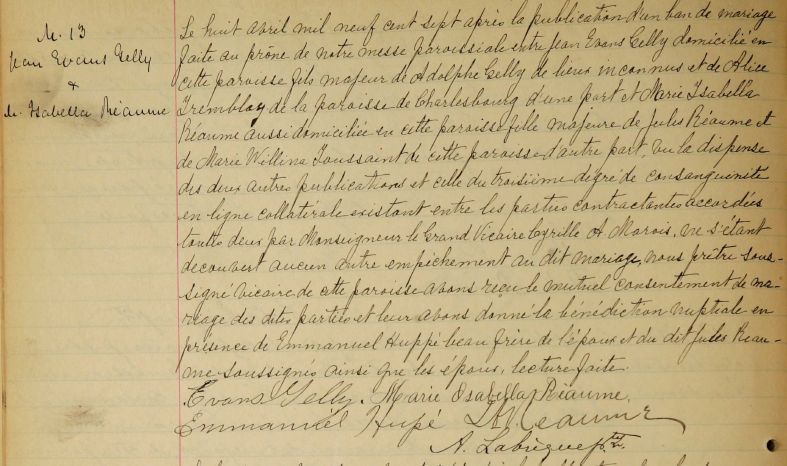 M. 13
Jean Evans Gelly
&
M. Isabella Réaume
Le huit avril mil neuf cent sept après la publication d'un ban de mariage
faite au prône de notre messe paroissiale entre Jean Evans Gelly domicilié en
cette paroisse fils majeur de Adolphe Gelly de lieux inconnus et de Alice
Tremblay de la paroisse de Charlesbourg d'une part et Marie Isabella
Réaume aussi domiciliée en cette paroisse fille majeure de Jules Réaume et
de Marie Willina Toussaint de cette paroisse d'autre part, vu la dispense
des deux autres publications et celle du troisième degré de consanguinité
en ligne collatérale existant entre les parties contractantes accordées
toutes deux par Monseigneur le Grand Vicaire Cyrille A Marois, ne s'étant
découvert aucun autre empêchement au dit mariage, nous prêtre sous-
signé vicaire de cette paroisse avons reçu le mutuel consentement de ma-
riage des dites parties et leur avons donné la bénédiction nuptiale en
présence de Emmanuel Huppé beau frère de l'époux et du dit Jules Réau-
me soussignés ainsi que les époux, lecture faite.
Evans Gelly. Marie Isabella Réaume
Emmanuel Hupé J Reaume
A. Labrègue ptre